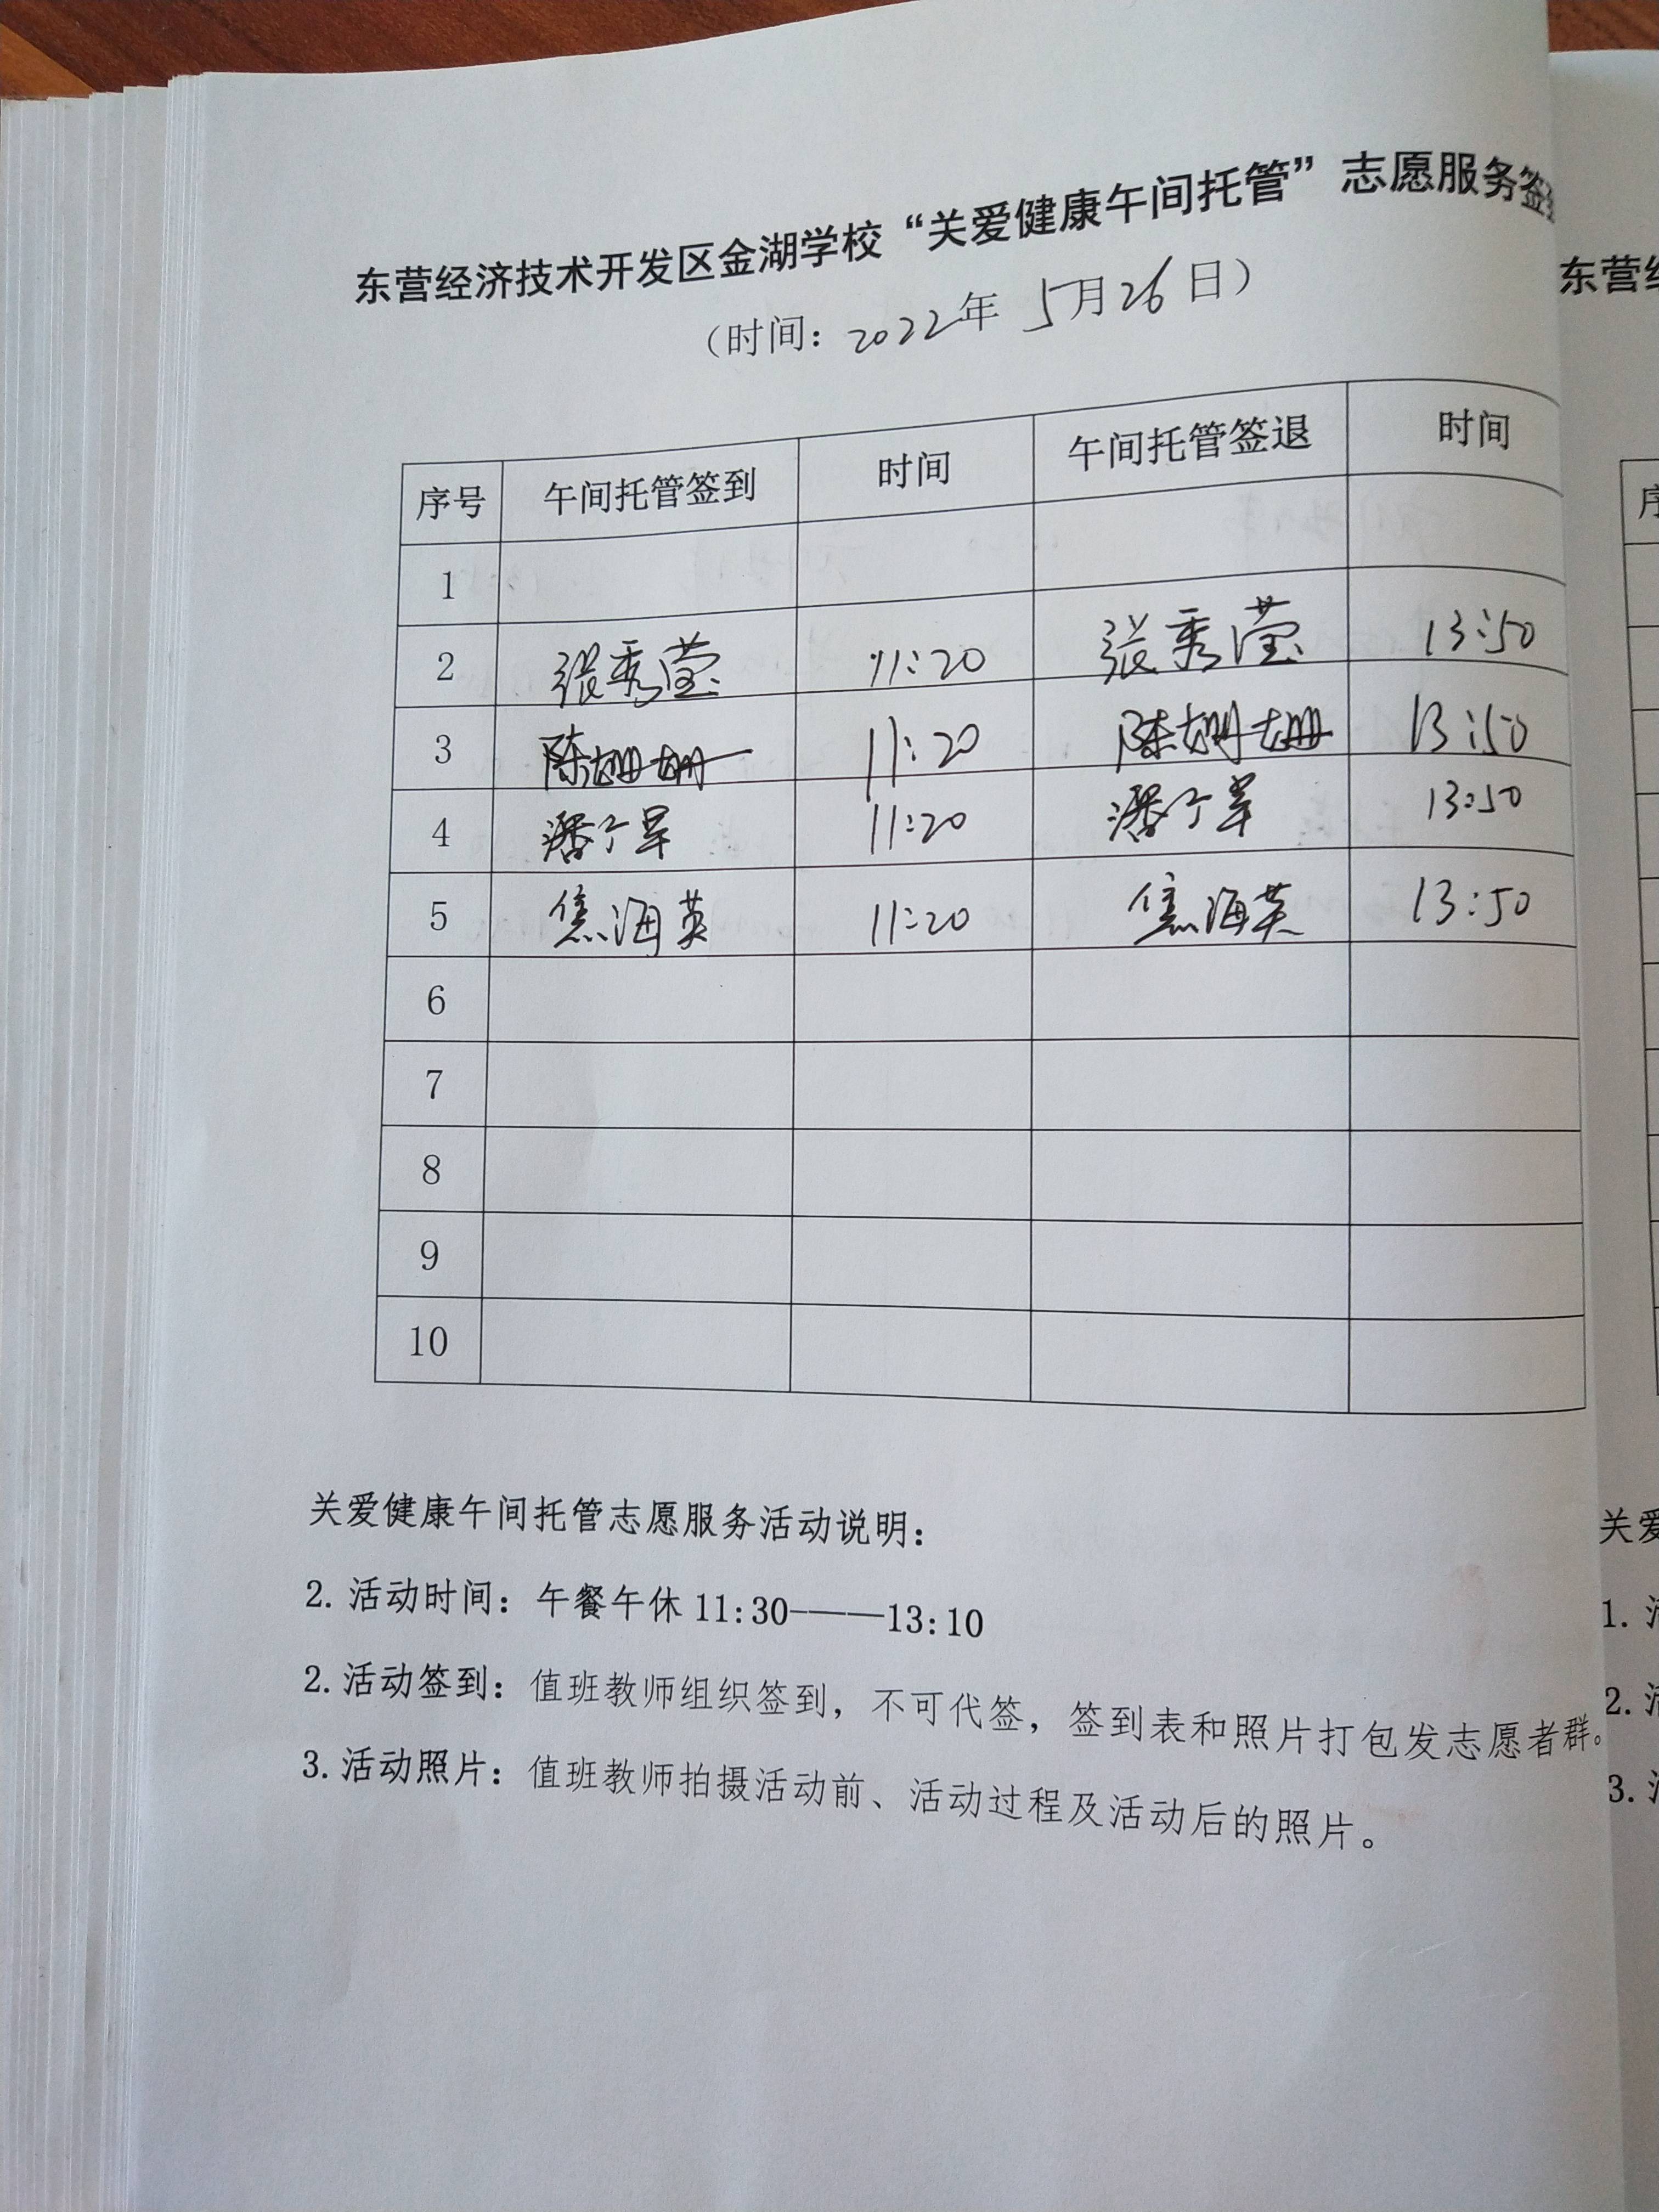 东营经济技术开发区金湖学校“关爱健康午间托管”志愿服务签
（时间：2022年 5月26日）
序号 午间托管签到 时间 午间托管签退 时间
1
2 张秀莹 11:20 张秀莹 13:50
3 陈姗姗 11:20 陈姗姗 13:50
4 潘 11:20 潘 13:50
5 焦海英 11:20 焦海英 13:50
6
7
8
9
10
关爱健康午间托管志愿服务活动说明：
2. 活动时间：午餐午休 11:30-——13:10
2. 活动签到：值班教师组织签到，不可代签，签到表和照片打包发志愿者群。
3. 活动照片：值班教师拍摄活动前、活动过程及活动后的照片。
东营
序
关爱
1.
2.
3.